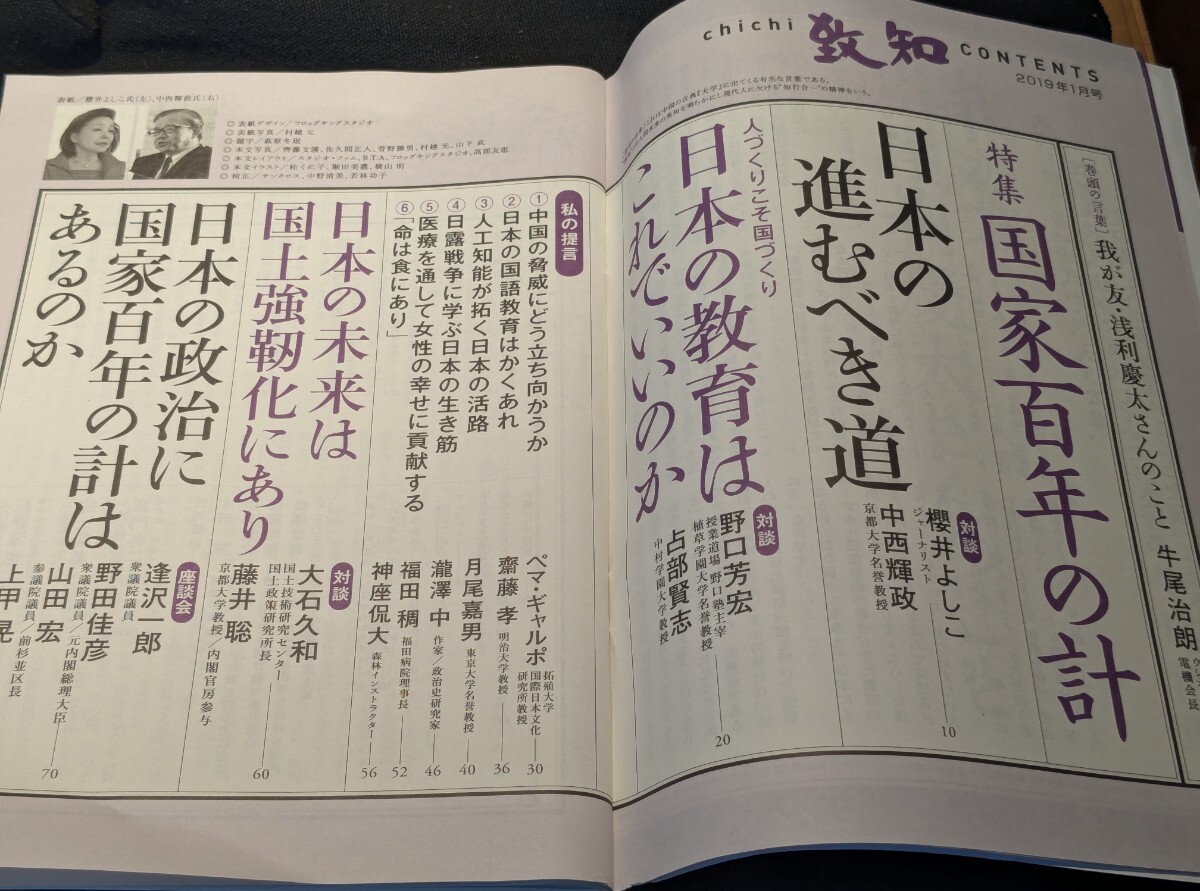 chichi 致知 CONTENTS
2019年1月号
［巻頭の言葉］ 我が友・浅利慶太さんのこと 牛尾治朗
電機会長
特集 国家百年の計
日本の
進むべき道
対談
櫻井よしこ
ジャーナリスト
中西輝政
京都大学名誉教授
10
人づくりこそ国づくり
日本の教育は
これでいいのか
対談
野口芳宏
授業道場 野口塾主宰
植草学園大学名誉教授
占部賢志
中村学園大学教授
20
表紙／櫻井よしこ氏（左）、中西輝政氏（右）
◎表紙デザイン／フロッグキングスタジオ
◎表紙写真／村越 元
◎題字／荻原冬珉
◎本文写真／齊藤文護、佐久間正人、菅野勝男、村越 元、山下 武
◎本文レイアウト／スタジオ・ファム、R.T.A、フロッグキングスタジオ、高部友恵
◎本文イラスト／桂くに子、堀田美農、横山 明
◎校正／サンクロス、中野清美、若林功子
私の提言
①中国の脅威にどう立ち向かうか
ペマ・ギャルポ
拓殖大学
国際日本文化
研究所教授
30
②日本の国語教育はかくあれ
齋藤 孝 明治大学教授 36
③人工知能が拓く日本の活路
月尾嘉男 東京大学名誉教授 40
④日露戦争に学ぶ日本の生き筋
瀧澤 中 作家／政治史研究家 46
⑤医療を通して女性の幸せに貢献する
福田 稠 福田病院理事長 52
⑥「命は食にあり」
神座侃大 森林インストラクター 56
日本の未来は
国土強靱化にあり
対談
大石久和
国土技術研究センター
国土政策研究所長
藤井 聡
京都大学教授／内閣官房参与
60
日本の政治に
国家百年の計は
あるのか
座談会
逢沢一郎
衆議院議員
野田佳彦
衆議院議員／元内閣総理大臣
山田 宏
参議院議員／前杉並区長
上甲 晃
70